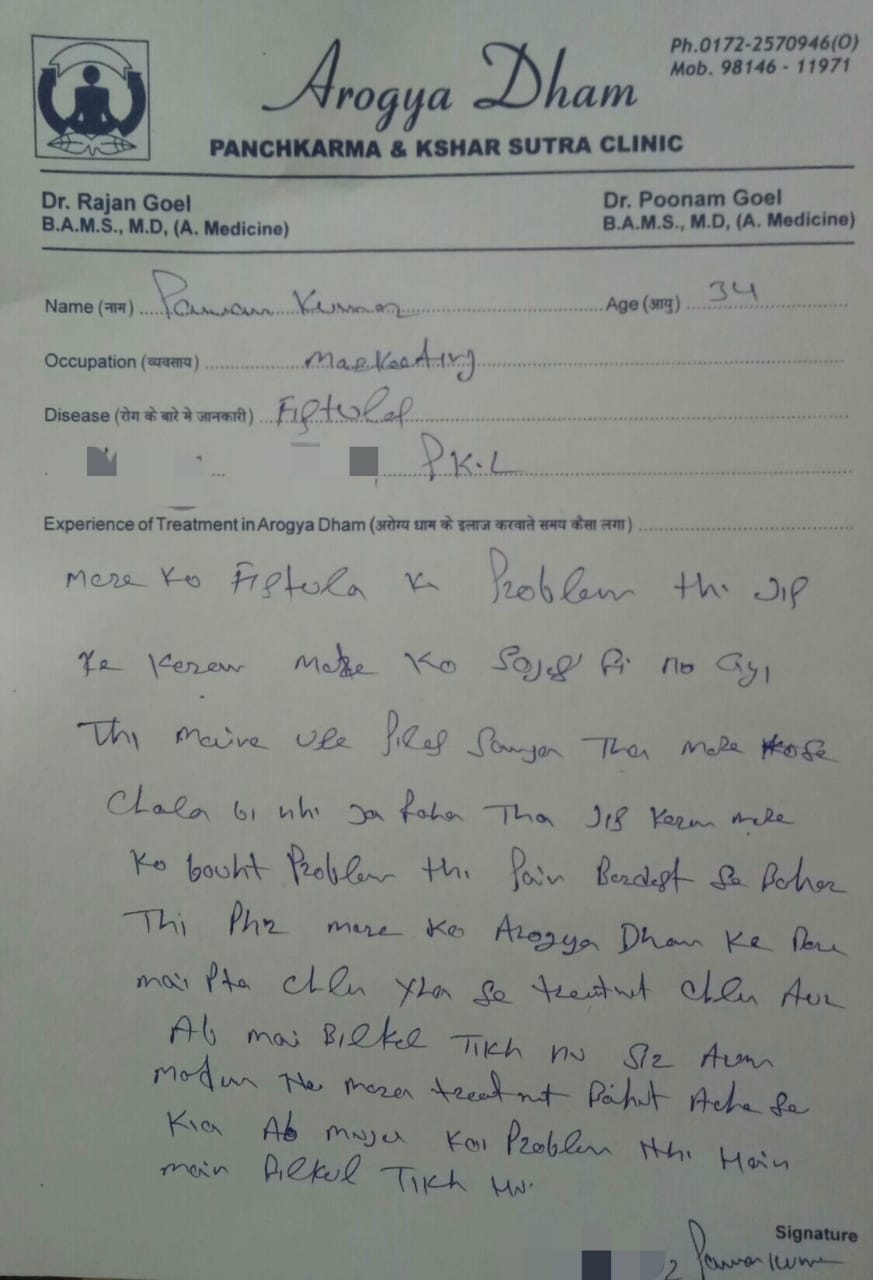 Ph.0172-2570946(O)
Mob. 98146 - 11971
Arogya Dham
PANCHKARMA & KSHAR SUTRA CLINIC
Dr. Rajan Goel
B.A.M.S., M.D, (A. Medicine)
Dr. Poonam Goel
B.A.M.S., M.D, (A. Medicine)
Name (नाम) Pawan Kumar Age (आयु) 34
Occupation (व्यवसाय)
Disease (रोग के बारे मे जानकारी)
P.K.L
Experience of Treatment in Arogya Dham (अरोग्य धाम के इलाज करवाते समय कैसा लगा)
Mere Ko Fistula Ki Problem thi Jis
Ke Keran Ko bi ho Gyi
Thi Maine Use Piles Tha Mere Kose
Chala bi nhi Ja Raha Tha Jis Keran Mere
Ko bouht Problem thi Pain Berdast Se Baher
Thi Phr mere Ko Arogya Dham Ke Bare
mai Pta Chla Yha Se Chla Aur
Ab mai Bilkul TIKh hu Sir Aur
Madum Ne Mera Bahut Acha Se
Kia Ab Koi Problem Nhi Hain
main Bilkul TIKh Hu.
Signature
Pawan Kumar